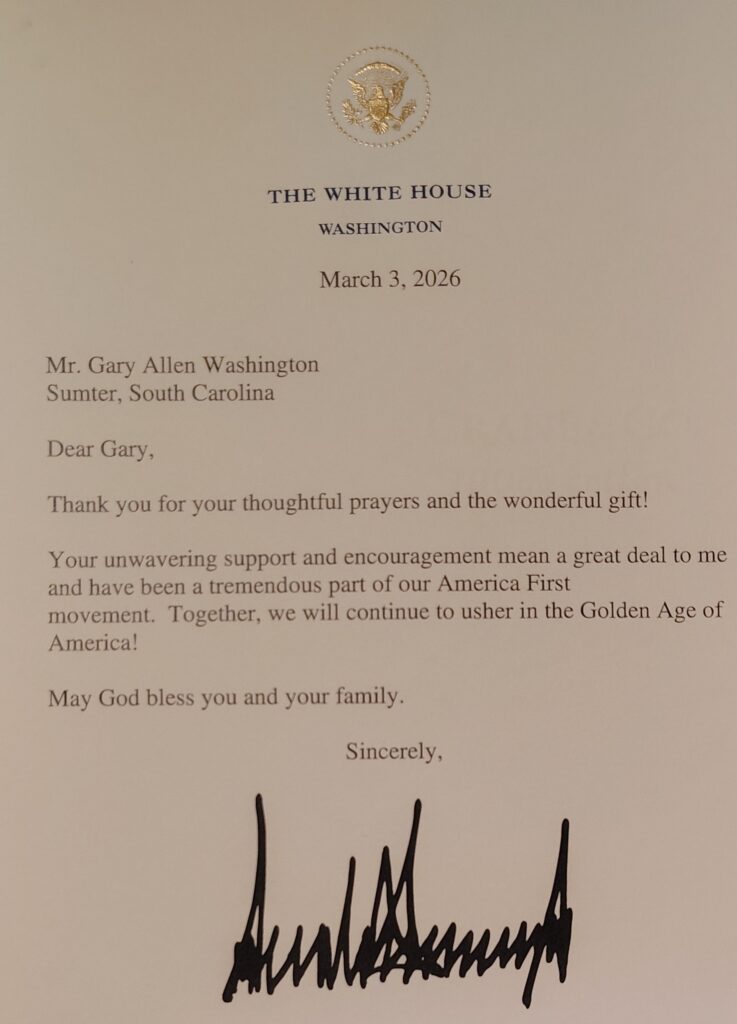 THE WHITE HOUSE
WASHINGTON
March 3, 2026
Mr. Gary Allen Washington
Sumter, South Carolina
Dear Gary,
Thank you for your thoughtful prayers and the wonderful gift!
Your unwavering support and encouragement mean a great deal to me
and have been a tremendous part of our America First
movement.  Together, we will continue to usher in the Golden Age of
America!
May God bless you and your family.
Sincerely,